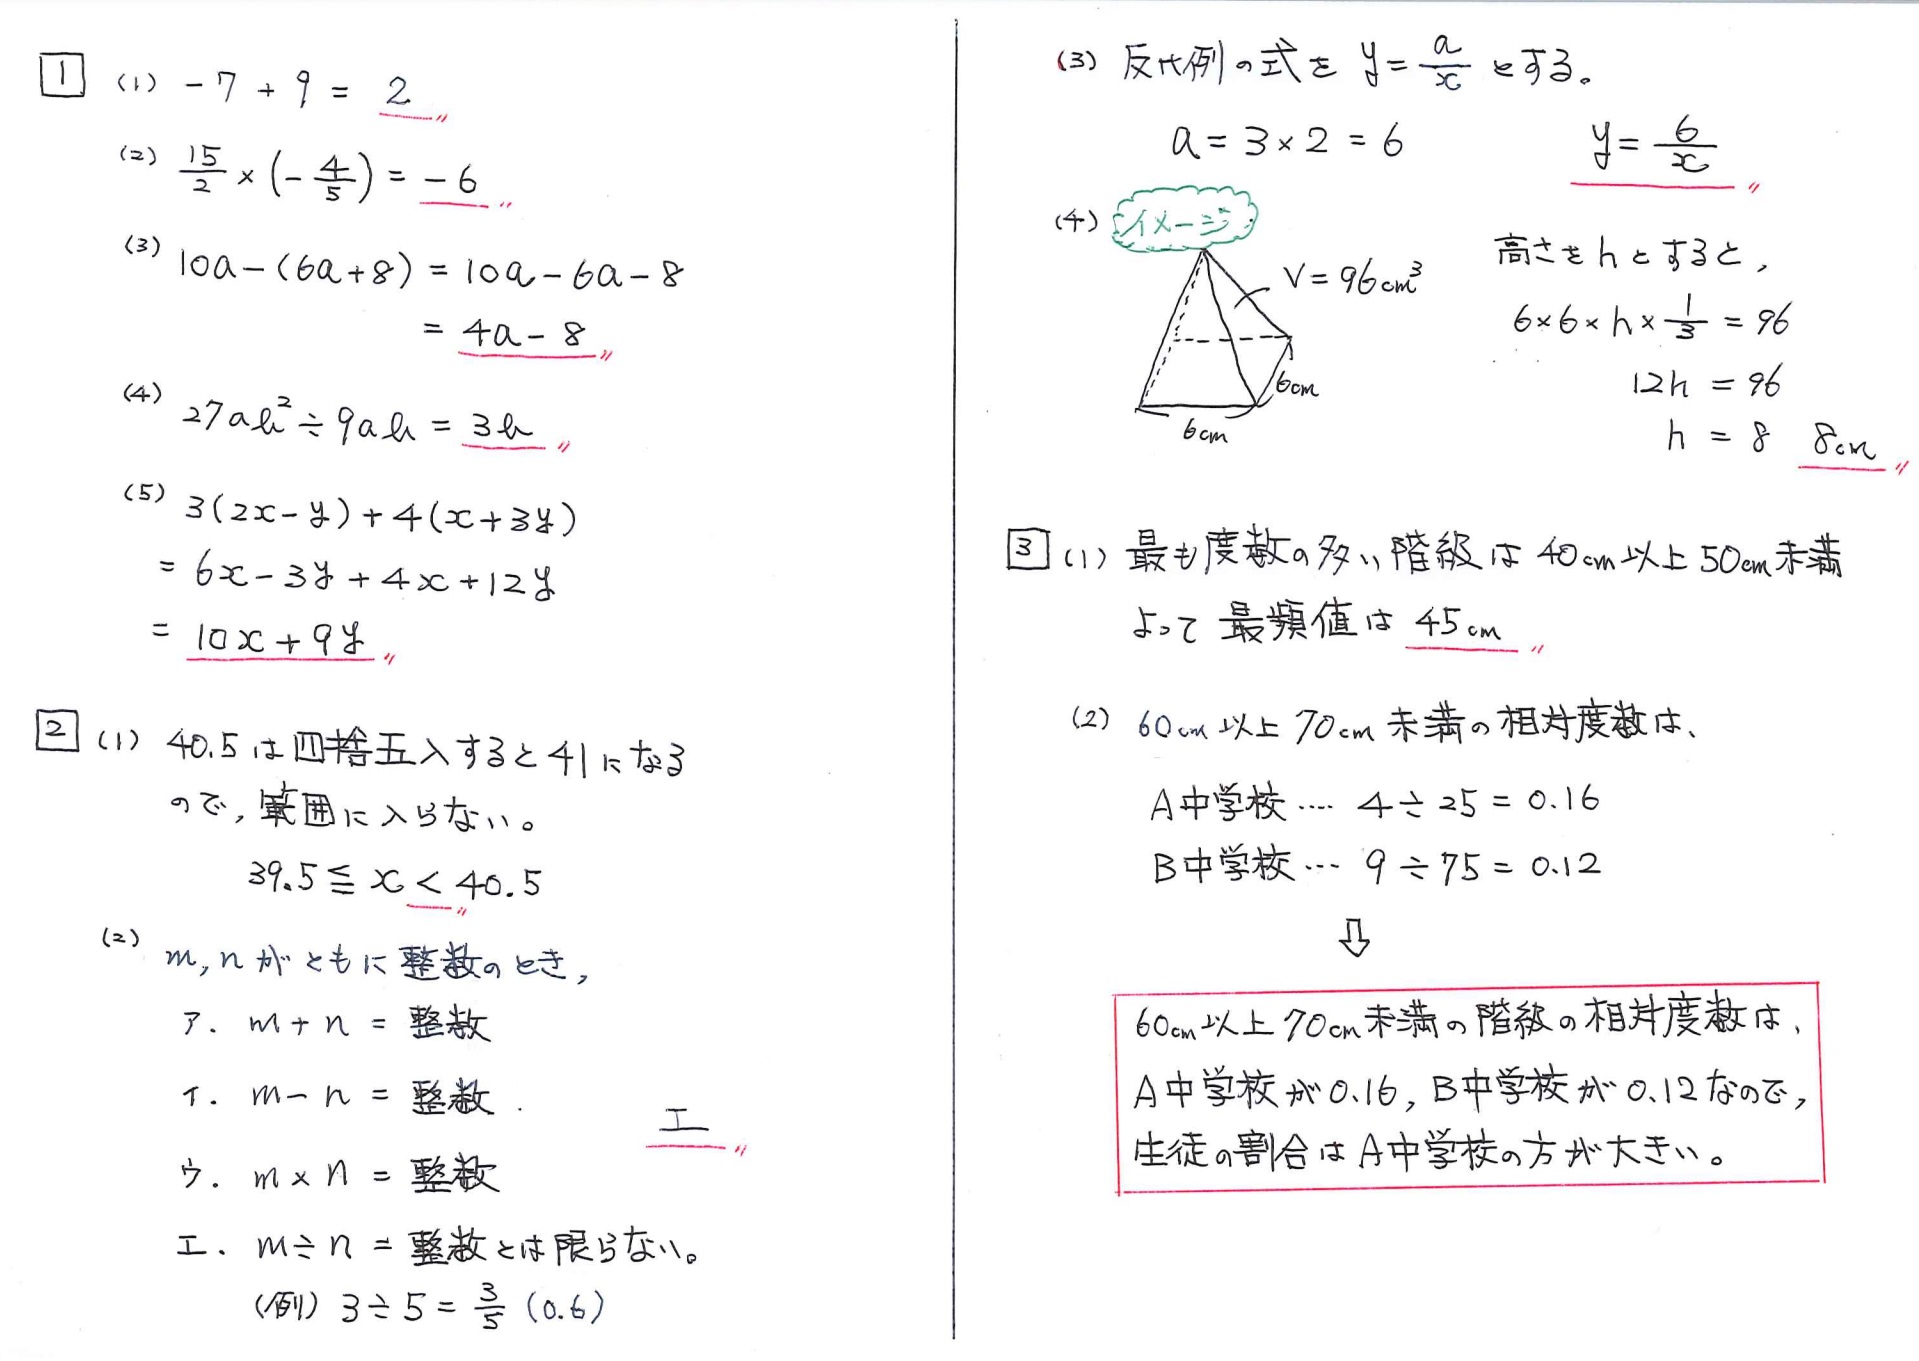 1 (1) -7 + 9 = 2
(2) 15/2 × (-4/5) = -6
(3) 10a-(6a+8) = 10a-6a-8
= 4a-8
(4) 27ab² ÷ 9ab = 3b
(5) 3(2x-y)+4(x+3y)
= 6x-3y+4x+12y
= 10x+9y
2 (1) 40.5は四捨五入すると41になる
ので,範囲に入らない。
39.5 ≦ x < 40.5
(2) m,nがともに整数のとき,
ア. m+n = 整数
イ. m-n = 整数
エ
ウ. m×n = 整数
エ. m÷n = 整数とは限らない。
(例) 3÷5 = 3/5 (0.6)
(3) 反比例の式を y = a/x とする。
a = 3×2 = 6
y = 6/x
(4) イメージ
V = 96cm³
6cm
6cm
高さをhとすると,
6×6×h×1/3 = 96
12h = 96
h = 8 8cm
3 (1) 最も度数の多い階級は40cm以上50cm未満
よって最頻値は 45cm
(2) 60cm以上70cm未満の相対度数は、
A中学校‥‥ 4÷25 = 0.16
B中学校… 9÷75 = 0.12
⇩
60cm以上70cm未満の階級の相対度数は、
A中学校が0.16, B中学校が0.12なので,
生徒の割合はA中学校の方が大きい。